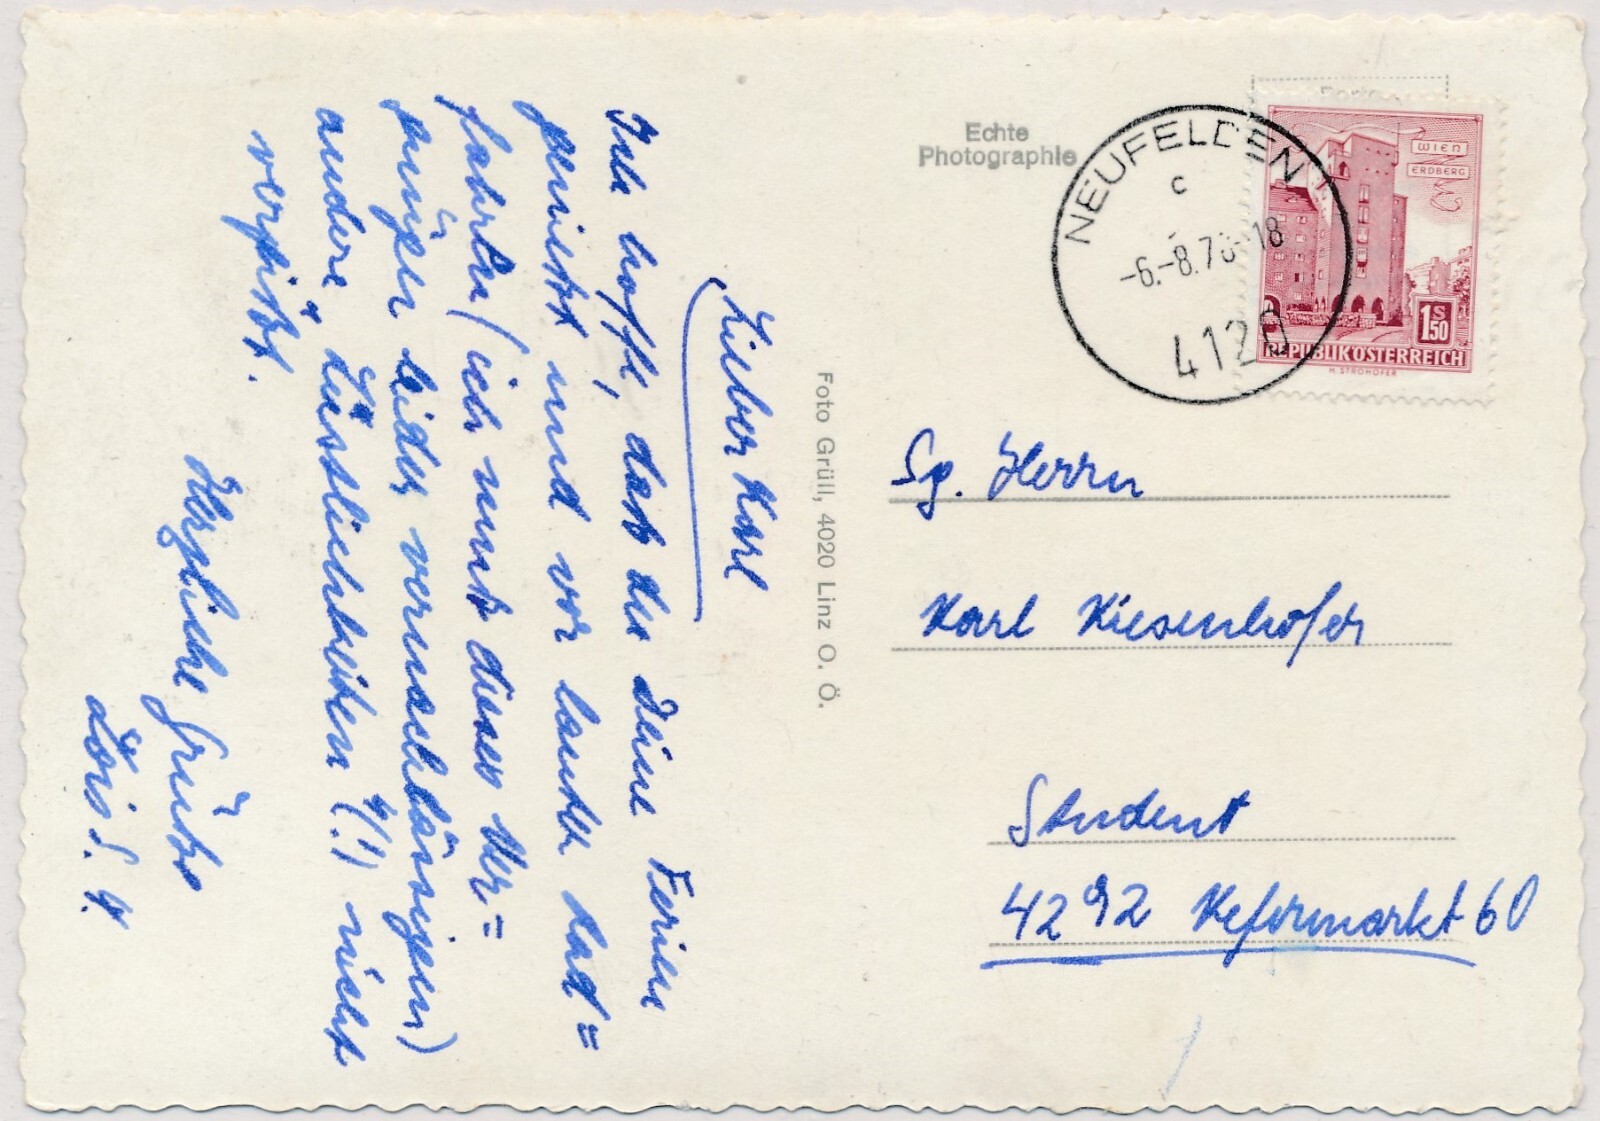 Lieber Karl
Ich hoffe, daß du deine Ferien
genießt und vor lauter Rad=
fahrten (ich muß dieses Ver=
gnügen leider vernachlässigen)
andere (!) nicht
vergißt.
Herzliche Grüße
Lois
Foto Grüll, 4020 Linz O. Ö.
Echte
Photographie
NEUFELDEN
c
4120
WIEN
ERDBERG
1S50
REPUBLIK ÖSTERREICH
H. STROHOFER
Sg. Herrn
Karl Kiesenhofer
Student
4292 Kefermarkt 60